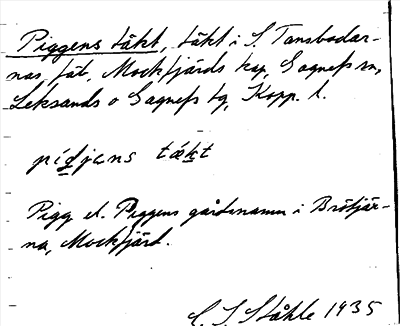 Piggens täkt, täkt i S. Tansbodar-
nas fät, Mockfjärds kap, Gagnefs sn,
Leksands o Gagnefs tg, Kopp. l.
pídjens tækt
Pigg el. Piggens gårdsnamn i Brötjär-
na, Mockfjärd.
C. I. Ståhle 1935